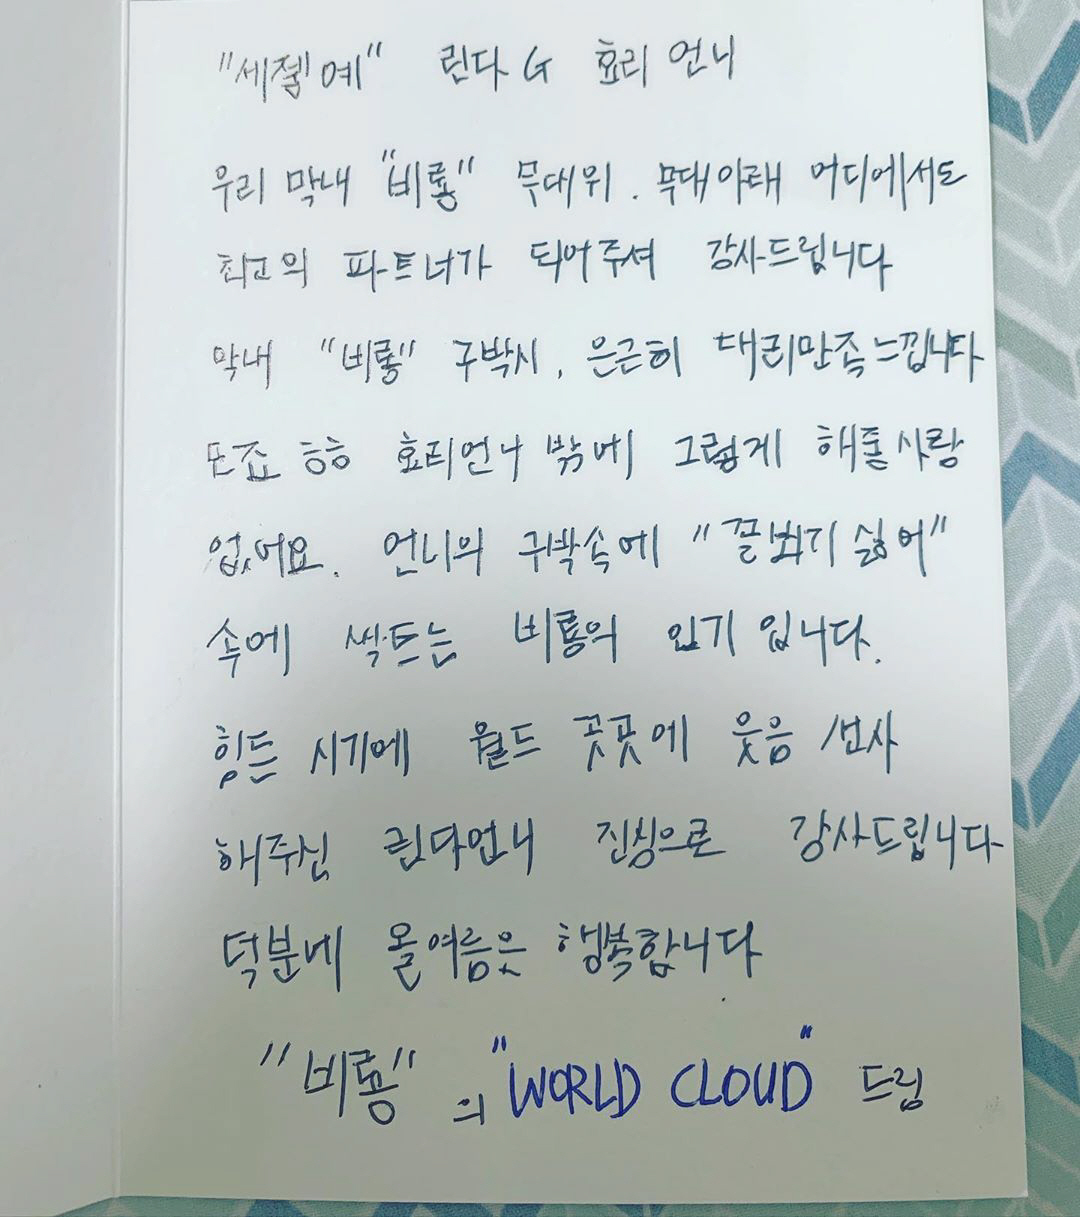 "세젤예" 린다G 효리 언니
우리 막내 "비룡" 무대위. 무대아래 어디에서도
최고의 파트너가 되어주셔 감사드립니다
막내 "비룡" 구박시, 은근히 대리만족느낍니다
도죠 ㅎㅎ 효리언니 밖에 그렇게 해줄사람
없어요. 언니의 구박속에 "꼴뵈기 싫어"
속에 싹트는 비룡의 인기 입니다.
힘든 시기에 월드 곳곳에 웃음 선사
해주신 린다언니 진심으로 감사드립니다
덕분에 올여름은 행복합니다
"비룡" 의 "WORLD CLOUD" 드림